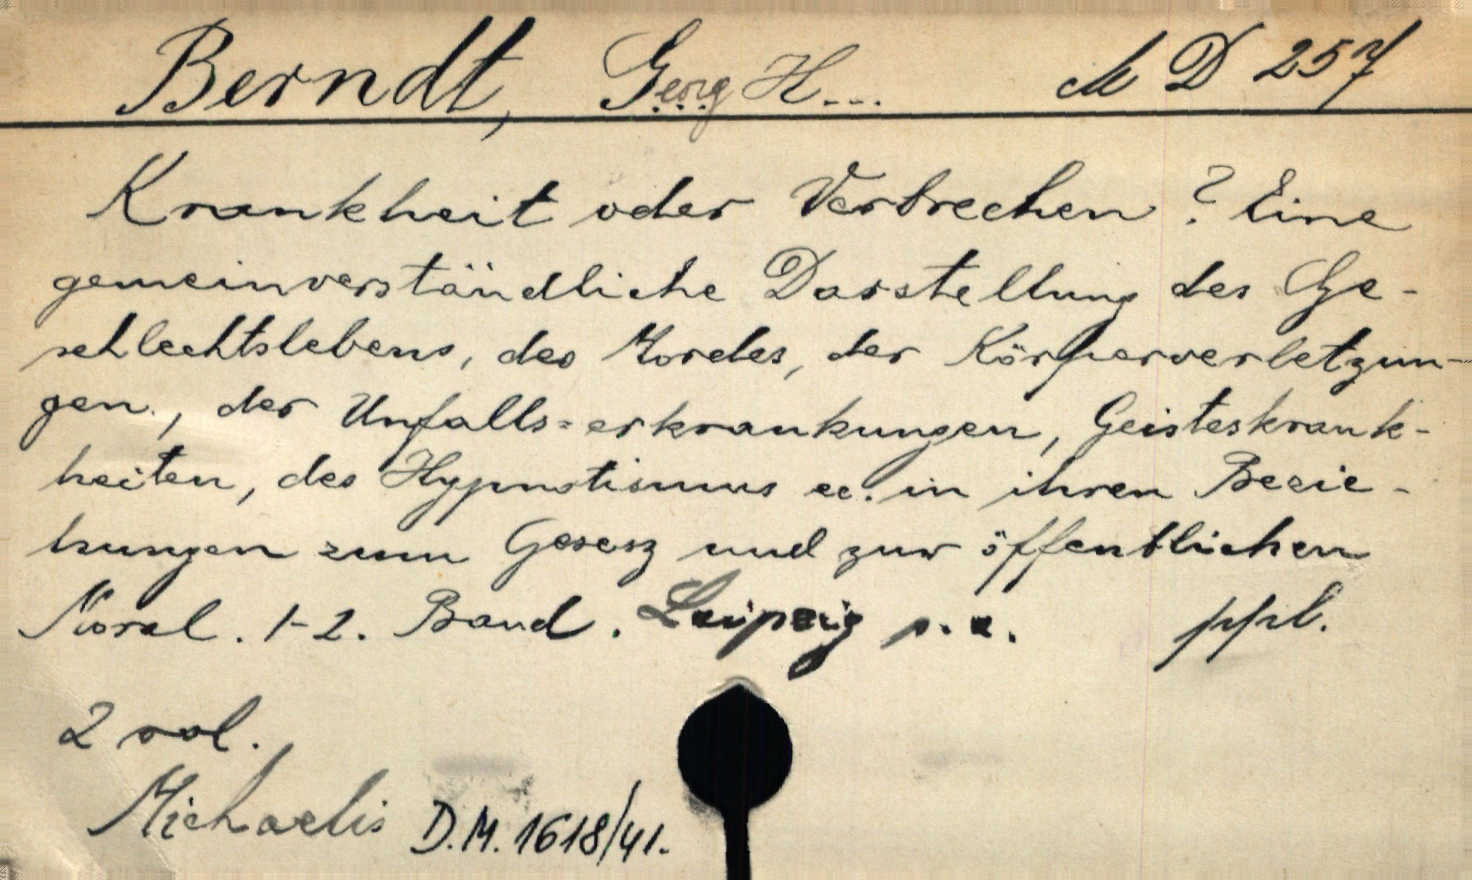 Berndt, Georg H... M D 257
Krankheit oder Verbrechen? Eine
gemeinverständliche Darstellung des Ge-
schlechtslebens, des Mordes, der Körperverletzun-
gen, der Unfalls-erkrankungen, Geisteskrank-
heiten, des Hypnotismus ec. in ihren Bezie-
hungen zum Gesesz und zur öffentlichen
Moral. 1-2. Band. Leipzig s. a. ppl.
2 vol.
Michaelis D.M. 1618/41.